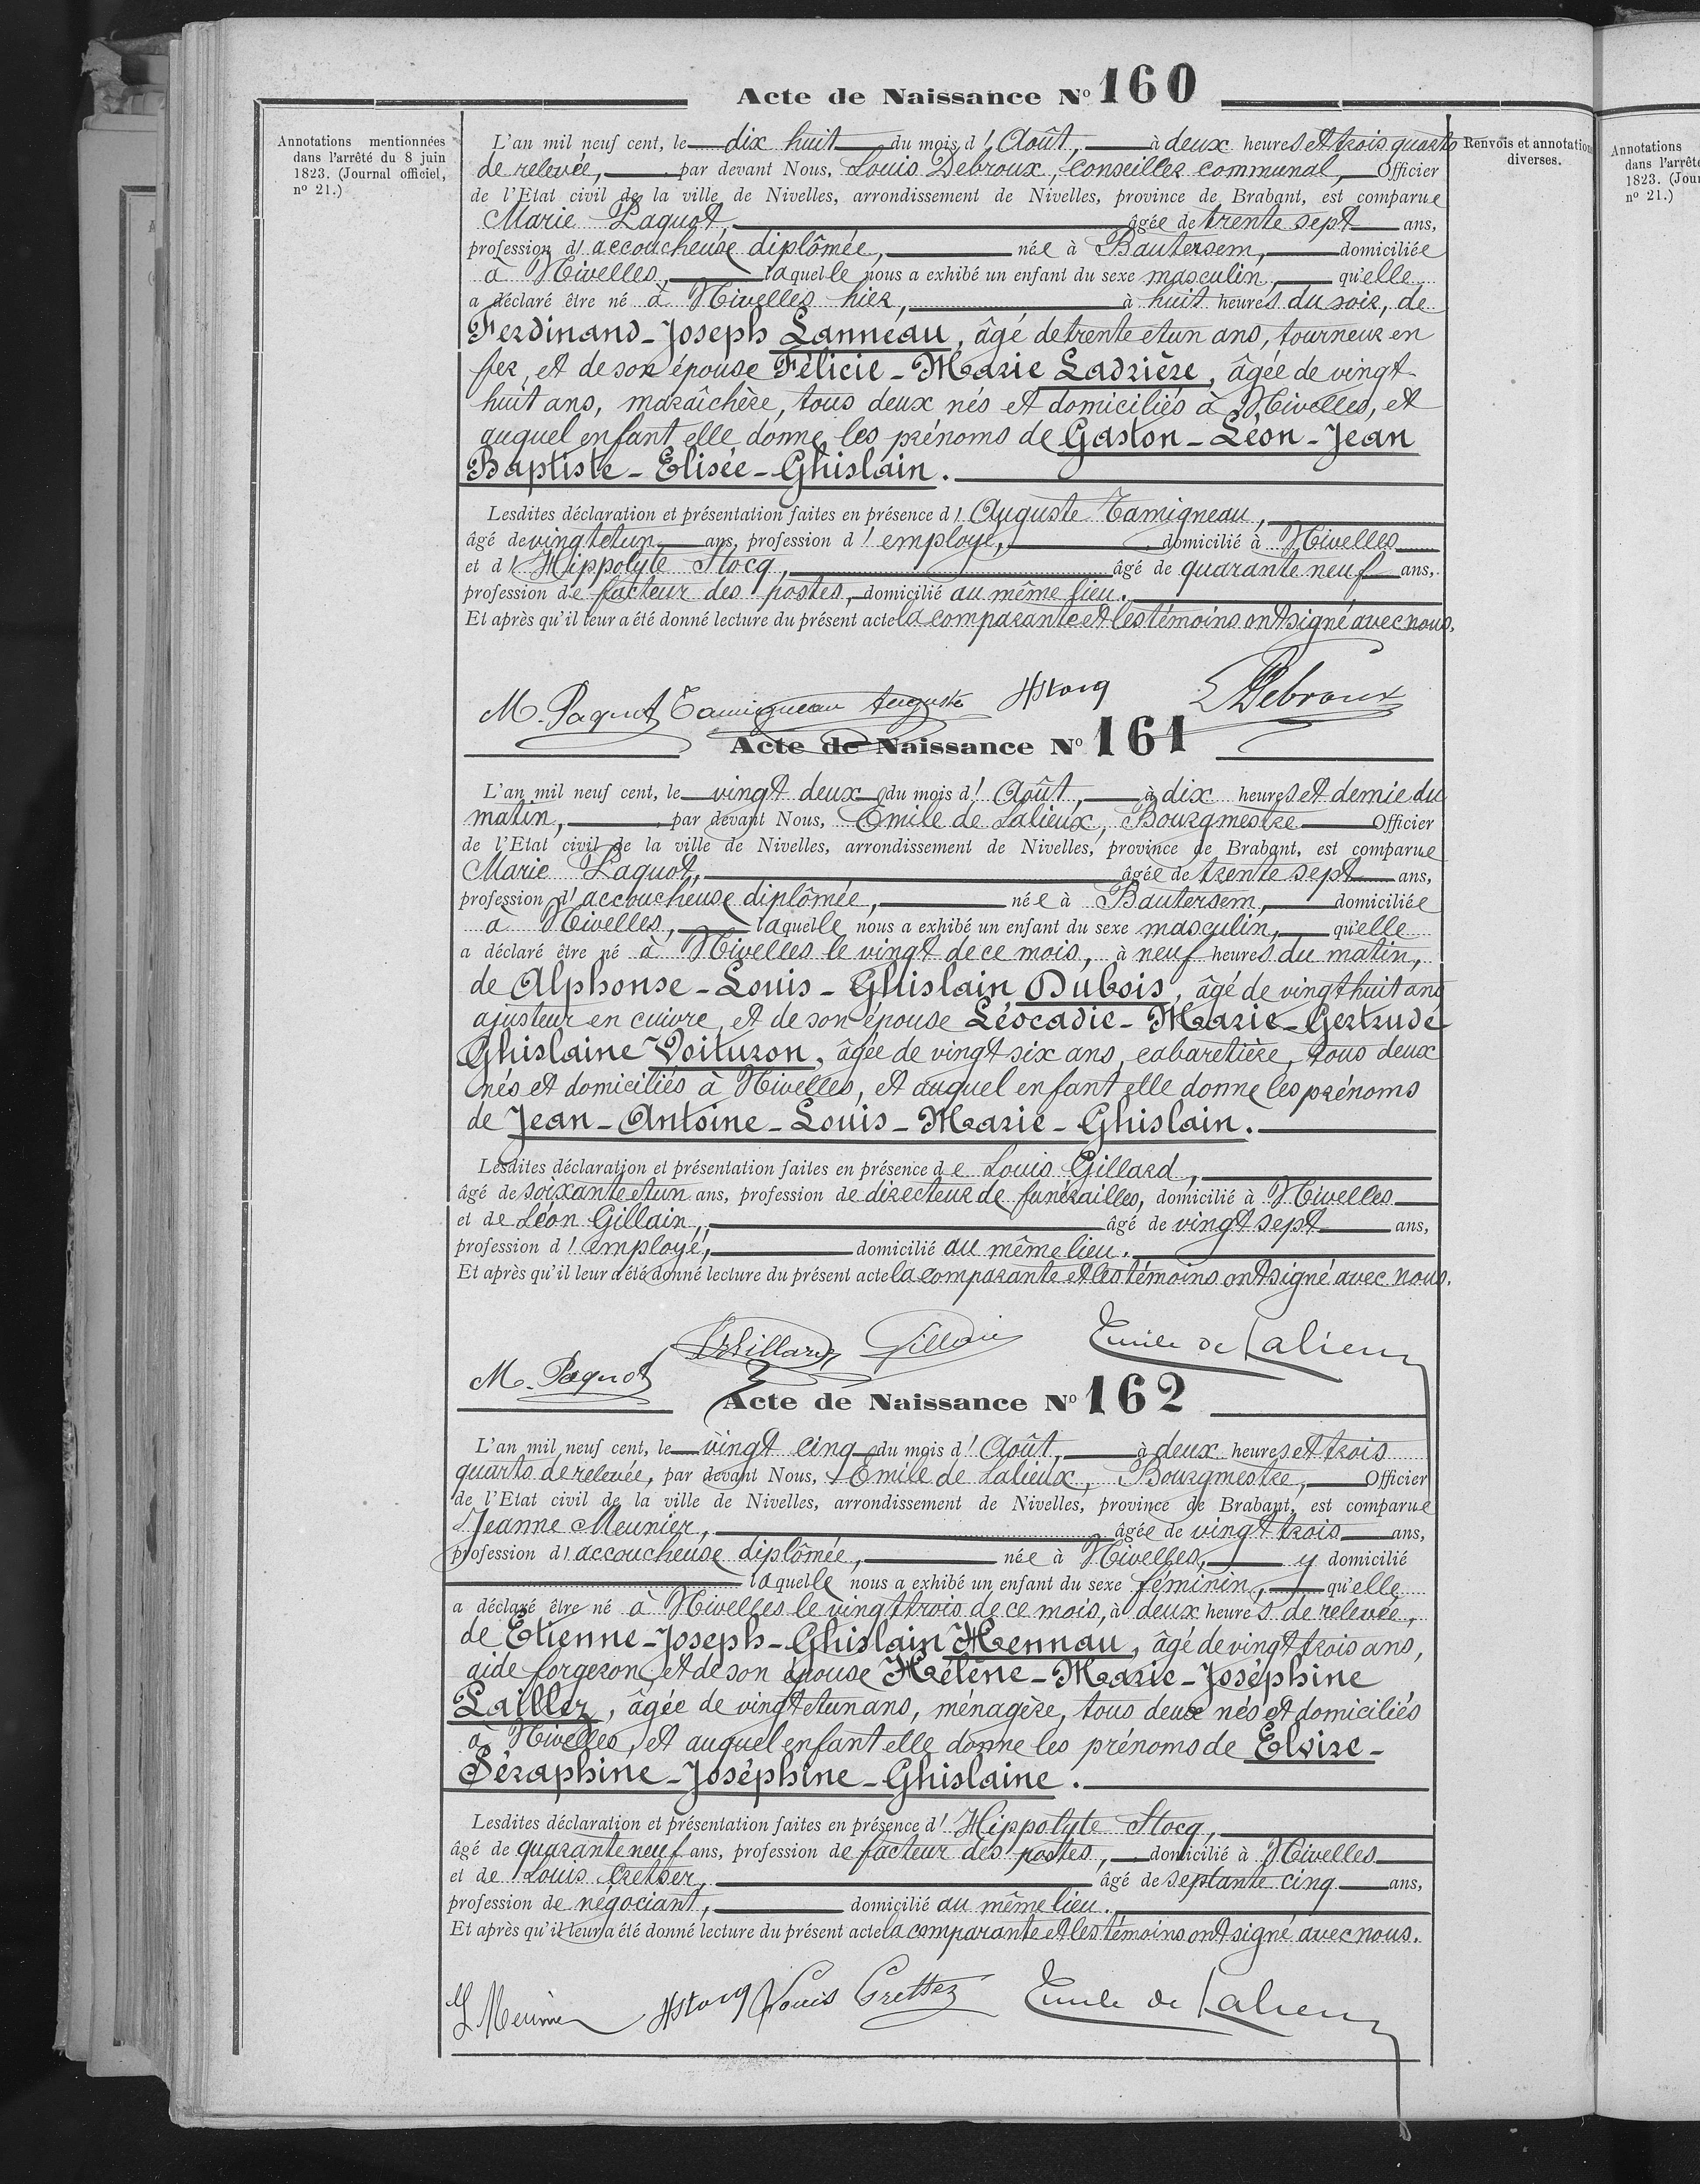 Acte de Naissance N° 160
Annotations mentionnées
dans l'arrêté du 8 juin
1823. (Journal officiel,
n° 21.)
Renvois et annotation
diverses.
L'an mil neuf cent, le dix huit du mois d'Août, à deux heures et trois quarts
de relevée, par devant Nous, Louis Debroux, Conseiller communal, Officier
de l'Etat civil de la ville de Nivelles, arrondissement de Nivelles, province de Brabant, est comparue
Marie Paquot, âgée de trente sept ans,
profession d'accoucheuse diplômée, née à Bautersem, domiciliée
à Nivelles, laquelle nous a exhibé un enfant du sexe masculin, qu'elle
a déclaré être né à Nivelles hier, à huit heures du soir, de
Ferdinand-Joseph Lanneau, âgé de trente et un ans, tourneur en
fer, et de son épouse Félicie-Marie Ladrière, âgée de vingt
huit ans, maraîchère, tous deux nés et domiciliés à Nivelles, et
auquel enfant elle donne les prénoms de Gaston-Léon-Jean
Baptiste-Elisée-Ghislain.
Lesdites déclaration et présentation faites en présence d'Auguste Tamigneau,
âgé de vingt et un ans, profession d'employé, domicilié à Nivelles
et d'Hippolyte Stocq, âgé de quarante neuf ans,
profession de facteur des postes, domicilié au même lieu.
Et après qu'il leur a été donné lecture du présent acte la comparante et les témoins ont signé avec nous.
M. Paquot Tamigneau Auguste HStocq LDebroux
Acte de Naissance N° 161
L'an mil neuf cent, le vingt deux du mois d'Août, à dix heures et demie du
matin, par devant Nous, Emile de Lalieux, Bourgmestre Officier
de l'Etat civil de la ville de Nivelles, arrondissement de Nivelles, province de Brabant, est comparue
Marie Paquot, âgée de trente sept ans,
profession d'accoucheuse diplômée, née à Bautersem, domiciliée
à Nivelles, laquelle nous a exhibé un enfant du sexe masculin, qu'elle
a déclaré être né à Nivelles le vingt de ce mois, à neuf heures du matin,
de Alphonse-Louis-Ghislain Dubois, âgé de vingt huit ans
ajusteur en cuivre, et de son épouse Léocadie-Marie-Gertrude
Ghislaine Voituron, âgée de vingt six ans, cabaretière, tous deux
nés et domiciliés à Nivelles, et auquel enfant elle donne les prénoms
de Jean-Antoine-Louis-Marie-Ghislain.
Lesdites déclaration et présentation faites en présence de Louis Gillard,
âgé de soixante et un ans, profession de directeur de funérailles, domicilié à Nivelles
et de Léon Gillain, âgé de vingt sept ans,
profession d'employé, domicilié au même lieu.
Et après qu'il leur a été donné lecture du présent acte la comparante et les témoins ont signé avec nous.
M. Paquot Gillard Gillain Emile de Lalieux
Acte de Naissance N° 162
L'an mil neuf cent, le vingt cinq du mois d'Août, à deux heures et trois
quarts de relevée, par devant Nous, Emile de Lalieux, Bourgmestre, Officier
de l'Etat civil de la ville de Nivelles, arrondissement de Nivelles, province de Brabant, est comparue
Jeanne Meunier, âgée de vingt trois ans,
profession d'accoucheuse diplômée, née à Nivelles, y domicilié
laquelle nous a exhibé un enfant du sexe féminin, qu'elle
a déclaré être né à Nivelles le vingt trois de ce mois, à deux heures de relevée,
de Etienne-Joseph-Ghislain Hennau, âgé de vingt trois ans,
aide forgeron, et de son épouse Hélène-Marie-Joséphine
Paillez, âgée de vingt et un ans, ménagère, tous deux nés et domiciliés
à Nivelles, et auquel enfant elle donne les prénoms de Elvire-
Séraphine-Joséphine-Ghislaine.
Lesdites déclaration et présentation faites en présence d'Hippolyte Stocq,
âgé de quarante neuf ans, profession de facteur des postes, domicilié à Nivelles
et de Louis âgé de septante cinq ans,
profession de négociant, domicilié au même lieu.
Et après qu'il leur a été donné lecture du présent acte la comparante et les témoins ont signé avec nous.
J Meunier HStocq Louis Emile de Lalieux
Annotations
dans l'arrêté
1823. (Jour
n° 21.)